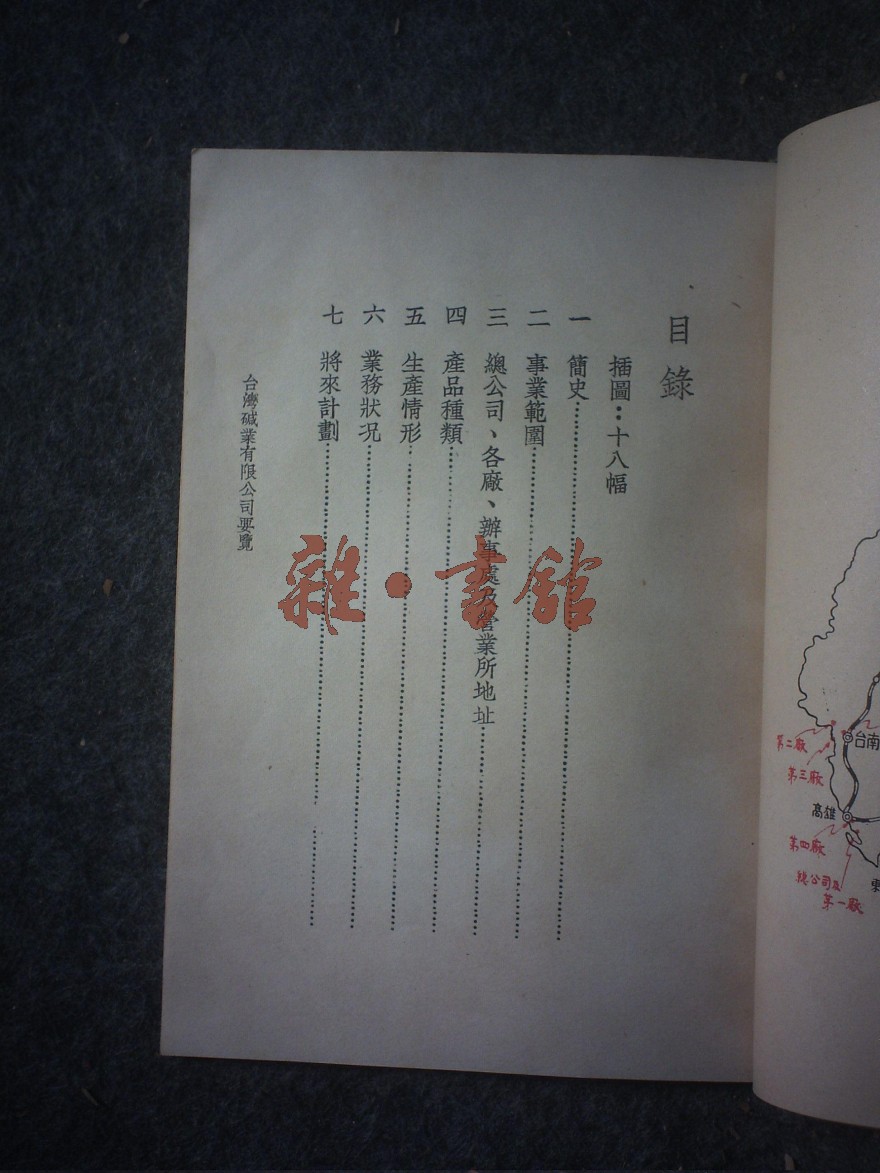 目錄
插圖：十八幅
一 簡史
二 事業範圍
三 總公司、各廠、辦事處及營業所地址
四 產品種類
五 生產情形
六 業務狀况
七 將來計劃
台灣碱業有限公司要覽
雜·書館
台南
第二廠
第三廠
高雄
第四廠
總公司及
第一廠
東